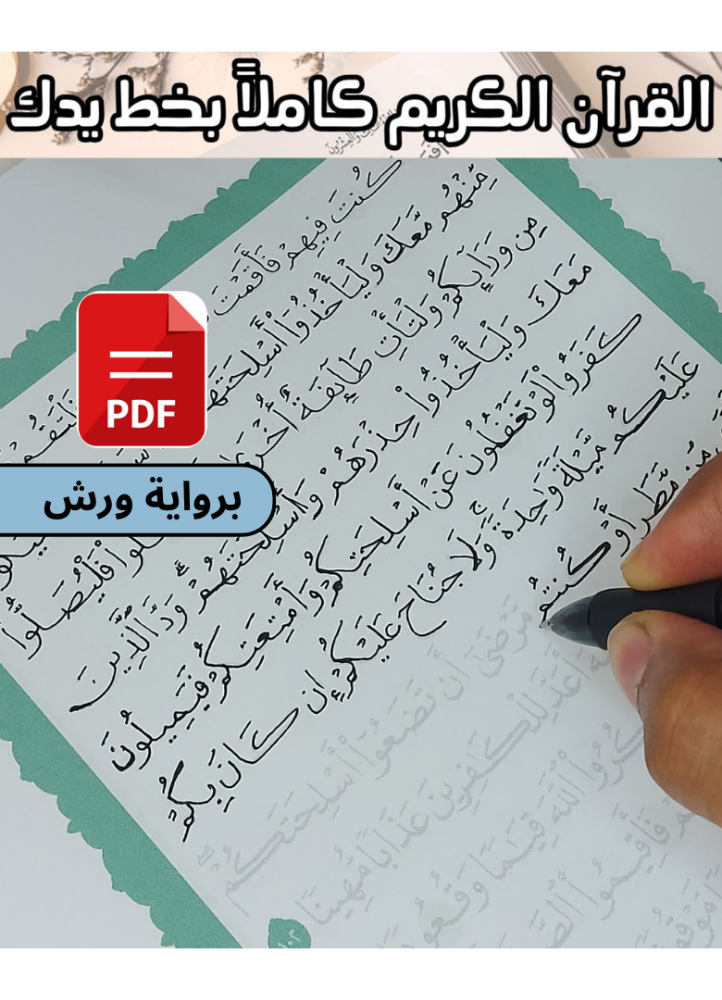 القرآن الكريم كاملاً بخط يدك
كُنتَ فِيهِمْ فَأَقَمْتَ
مِّنْهُم مَّعَكَ وَلْيَأْخُذُوٓاْ أَسْلِحَتَهُمْ
مِن وَرَآئِكُمْ وَلْتَأْتِ طَآئِفَةٌ أُخْرَىٰ
مَعَكَ وَلْيَأْخُذُواْ حِذْرَهُمْ وَأَسْلِحَتَهُمْ وَدَّ اَلذِينَ
كَفَرُواْ لَوْ تَغْفُلُونَ عَنْ أَسْلِحَتِكُمْ وَأَمْتِعَتِكُمْ فَيَمِيلُونَ
عَلَيْكُم مَّيْلَةً وَٰحِدَةً وَلَا جُنَاحَ عَلَيْكُمْ إِن كَانَ بِكُمْ
مِّن مَّطَرٍ أَوْ كُنتُم مَّرْضَىٰٓ أَن تَضَعُوٓاْ أَسْلِحَتَكُمْ
أَعَدَّ لِلْكَٰفِرِينَ عَذَابًا مُّهِينًا
قِيَٰمًا وَقُعُودًا
PDF
برواية ورش